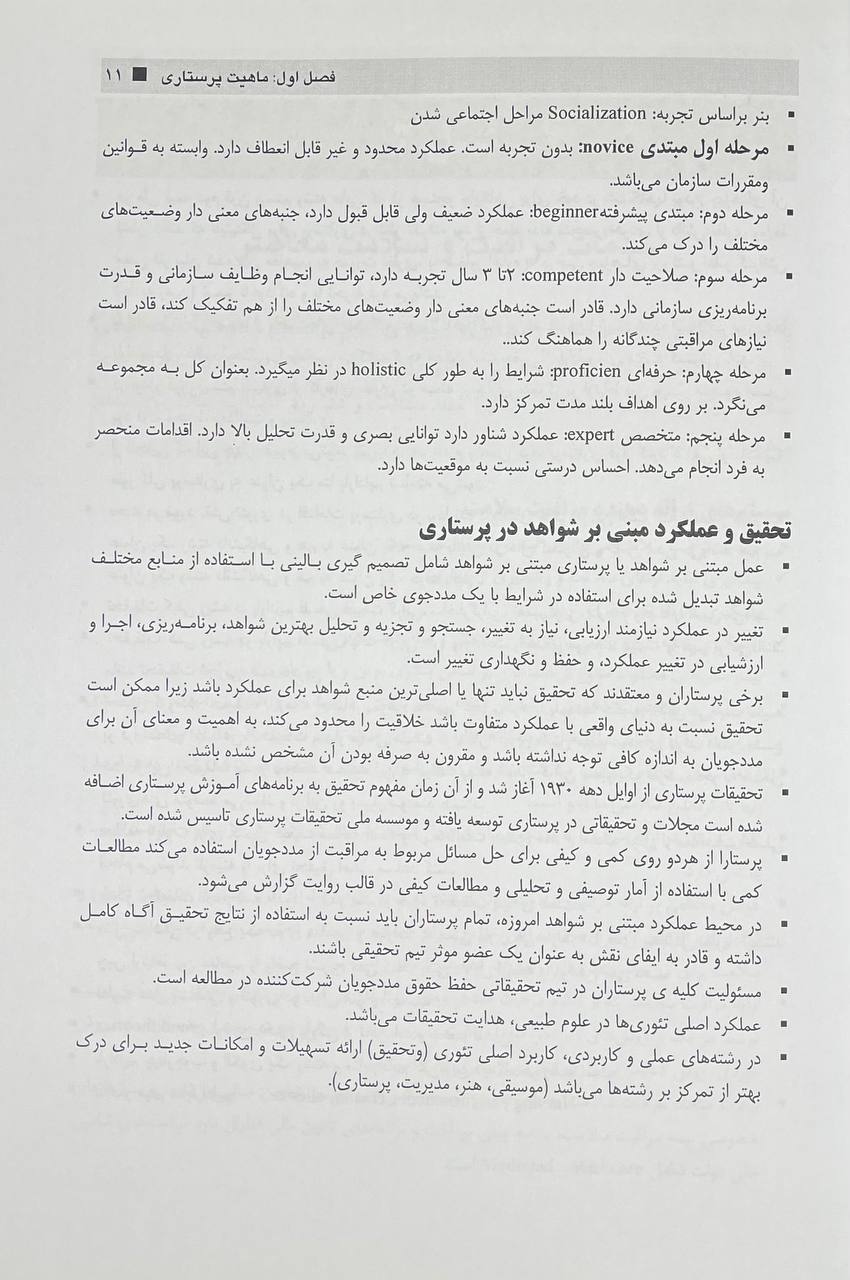 فصل اول: ماهیت پرستاری ■ ۱۱
▪ بنر براساس تجربه: Socialization مراحل اجتماعی شدن
▪ مرحله اول مبتدی novice: بدون تجربه است. عملکرد محدود و غیر قابل انعطاف دارد. وابسته به قـوانین
ومقررات سازمان می‌باشد.
▪ مرحله دوم: مبتدی پیشرفتهbeginner: عملکرد ضعیف ولی قابل قبول دارد، جنبه‌های معنی دار وضـعیت‌های
مختلف را درک می‌کند.
▪ مرحله سوم: صلاحیت دار competent: ۲تا ۳ سال تجربـه دارد، توانـایی انجـام وظـایف سـازمانی و قـدرت
برنامه‌ریزی سازمانی دارد. قادر است جنبه‌های معنی دار وضعیت‌های مختلف را از هم تفکیک کند، قادر است
نیازهای مراقبتی چندگانه را هماهنگ کند..
▪ مرحله چهارم: حرفه‌ای proficien: شرایط را به طور کلی holistic در نظر میگیرد. بعنوان کل بـه مجموعـه
می‌نگرد. بر روی اهداف بلند مدت تمرکز دارد.
▪ مرحله پنجم: متخصص expert: عملکرد شناور دارد توانایی بصری و قدرت تحلیل بالا دارد. اقدامات منحصر
به فرد انجام می‌دهد. احساس درستی نسبت به موقعیت‌ها دارد.
تحقیق و عملکرد مبنی بر شواهد در پرستاری
▪ عمل مبتنی بر شواهد یا پرستاری مبتنی بر شواهد شامل تصمیم گیری بـالینی بـا اسـتفاده از منابع مختلـف
شواهد تبدیل شده برای استفاده در شرایط با یک مددجوی خاص است.
▪ تغییر در عملکرد نیازمند ارزیابی، نیاز به تغییر، جستجو و تجزیه و تحلیل بهترین شواهد، برنامـه‌ریزی، اجـرا و
ارزشیابی در تغییر عملکرد، و حفظ و نگهداری تغییر است.
▪ برخی پرستاران و معتقدند که تحقیق نباید تنها یا اصلی‌ترین منبع شواهد برای عملکرد باشد زیرا ممکن است
تحقیق نسبت به دنیای واقعی با عملکرد متفاوت باشد خلاقیت را محدود می‌کند، به اهمیت و معنای آن برای
مددجویان به اندازه کافی توجه نداشته باشد و مقرون به صرفه بودن آن مشخص نشده باشد.
▪ تحقیقات پرستاری از اوایل دهه ۱۹۳۰ آغاز شد و از آن زمان مفهوم تحقیق به برنامه‌های آمـوزش پرسـتاری اضـافه
شده است مجلات و تحقیقاتی در پرستاری توسعه یافته و موسسه ملی تحقیقات پرستاری تاسیس شده است.
▪ پرستارا از هردو روی کمی و کیفی برای حل مسائل مربوط به مراقبت از مددجویان استفاده می‌کند مطالعـات
کمی با استفاده از آمار توصیفی و تحلیلی و مطالعات کیفی در قالب روایت گزارش می‌شود.
▪ در محیط عملکرد مبتنی بر شواهد امروزه، تمام پرستاران باید نسبت به استفاده از نتایج تحقیـق آگـاه کامـل
داشته و قادر به ایفای نقش به عنوان یک عضو موثر تیم تحقیقی باشند.
▪ مسئولیت کلیه ی پرستاران در تیم تحقیقاتی حفظ حقوق مددجویان شرکت‌کننده در مطالعه است.
▪ عملکرد اصلی تئوری‌ها در علوم طبیعی، هدایت تحقیقات می‌باشد.
▪ در رشته‌های عملی و کاربردی، کاربرد اصلی تئوری (وتحقیق) ارائه تسهیلات و امکانـات جدیـد بـرای درک
بهتر از تمرکز بر رشته‌ها می‌باشد (موسیقی، هنر، مدیریت، پرستاری).